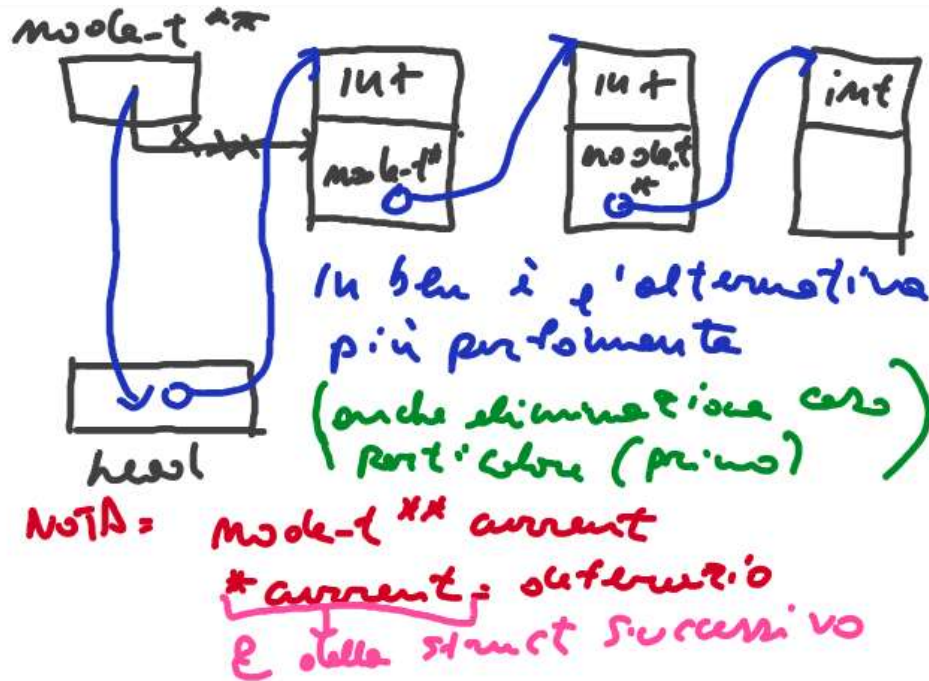 node_t **
int
int
int
node_t*
node_t
*
in blu è l'alternativa
più performante
(anche eliminazione caso
particolare (primo))
head
NOTA = node_t ** current
*current = deferenzio
È della struct successivo